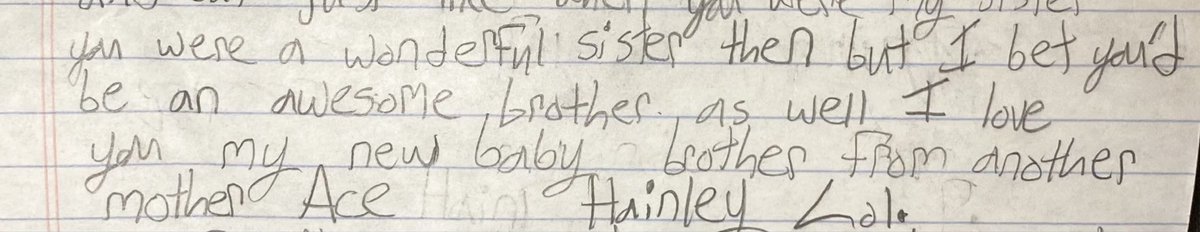 you were my sister
you were a wonderful sister then but I bet you'd
be an awesome, brother., as well I love
you my new baby brother from another
mother Ace Hainley Lol.